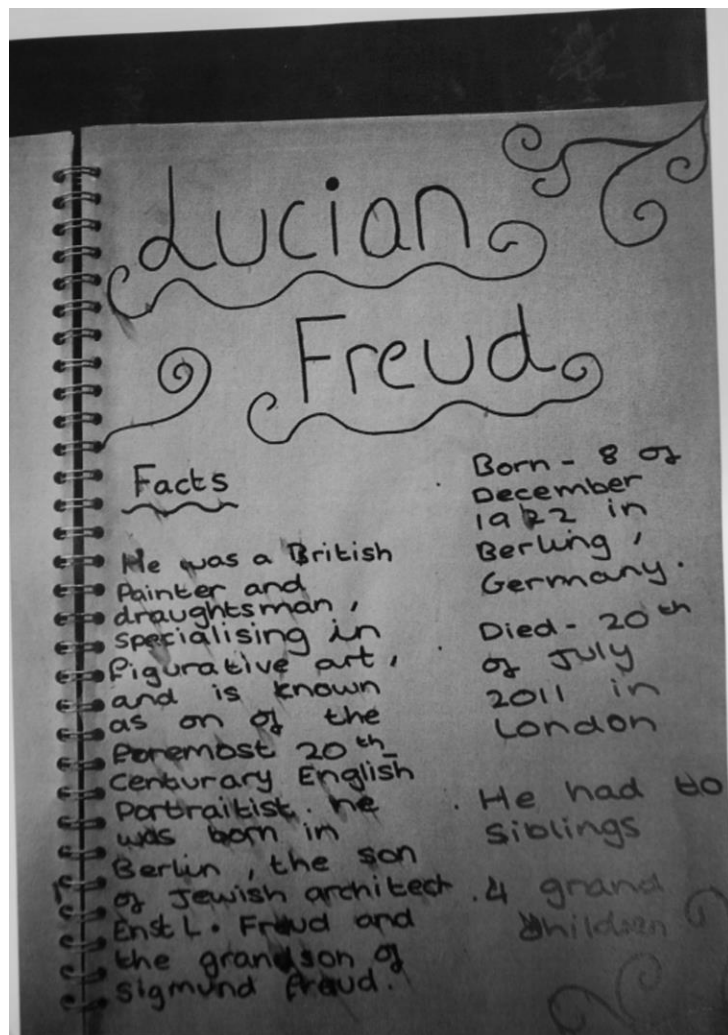 Lucian
Freud
Facts
He was a British
Painter and
draughtsman,
specialising in
figurative art,
and is known
as on of the
foremost 20th
centurary English
Portraitist. he
was born in
Berlin, the son
of Jewish architect
Enst L. Freud and
the grandson of
sigmund freud.
. Born - 8 of
December
1922 in
Berling,
Germany.
. Died - 20th
of July
2011 in
London
. He had to
siblings
. 4 grand
children